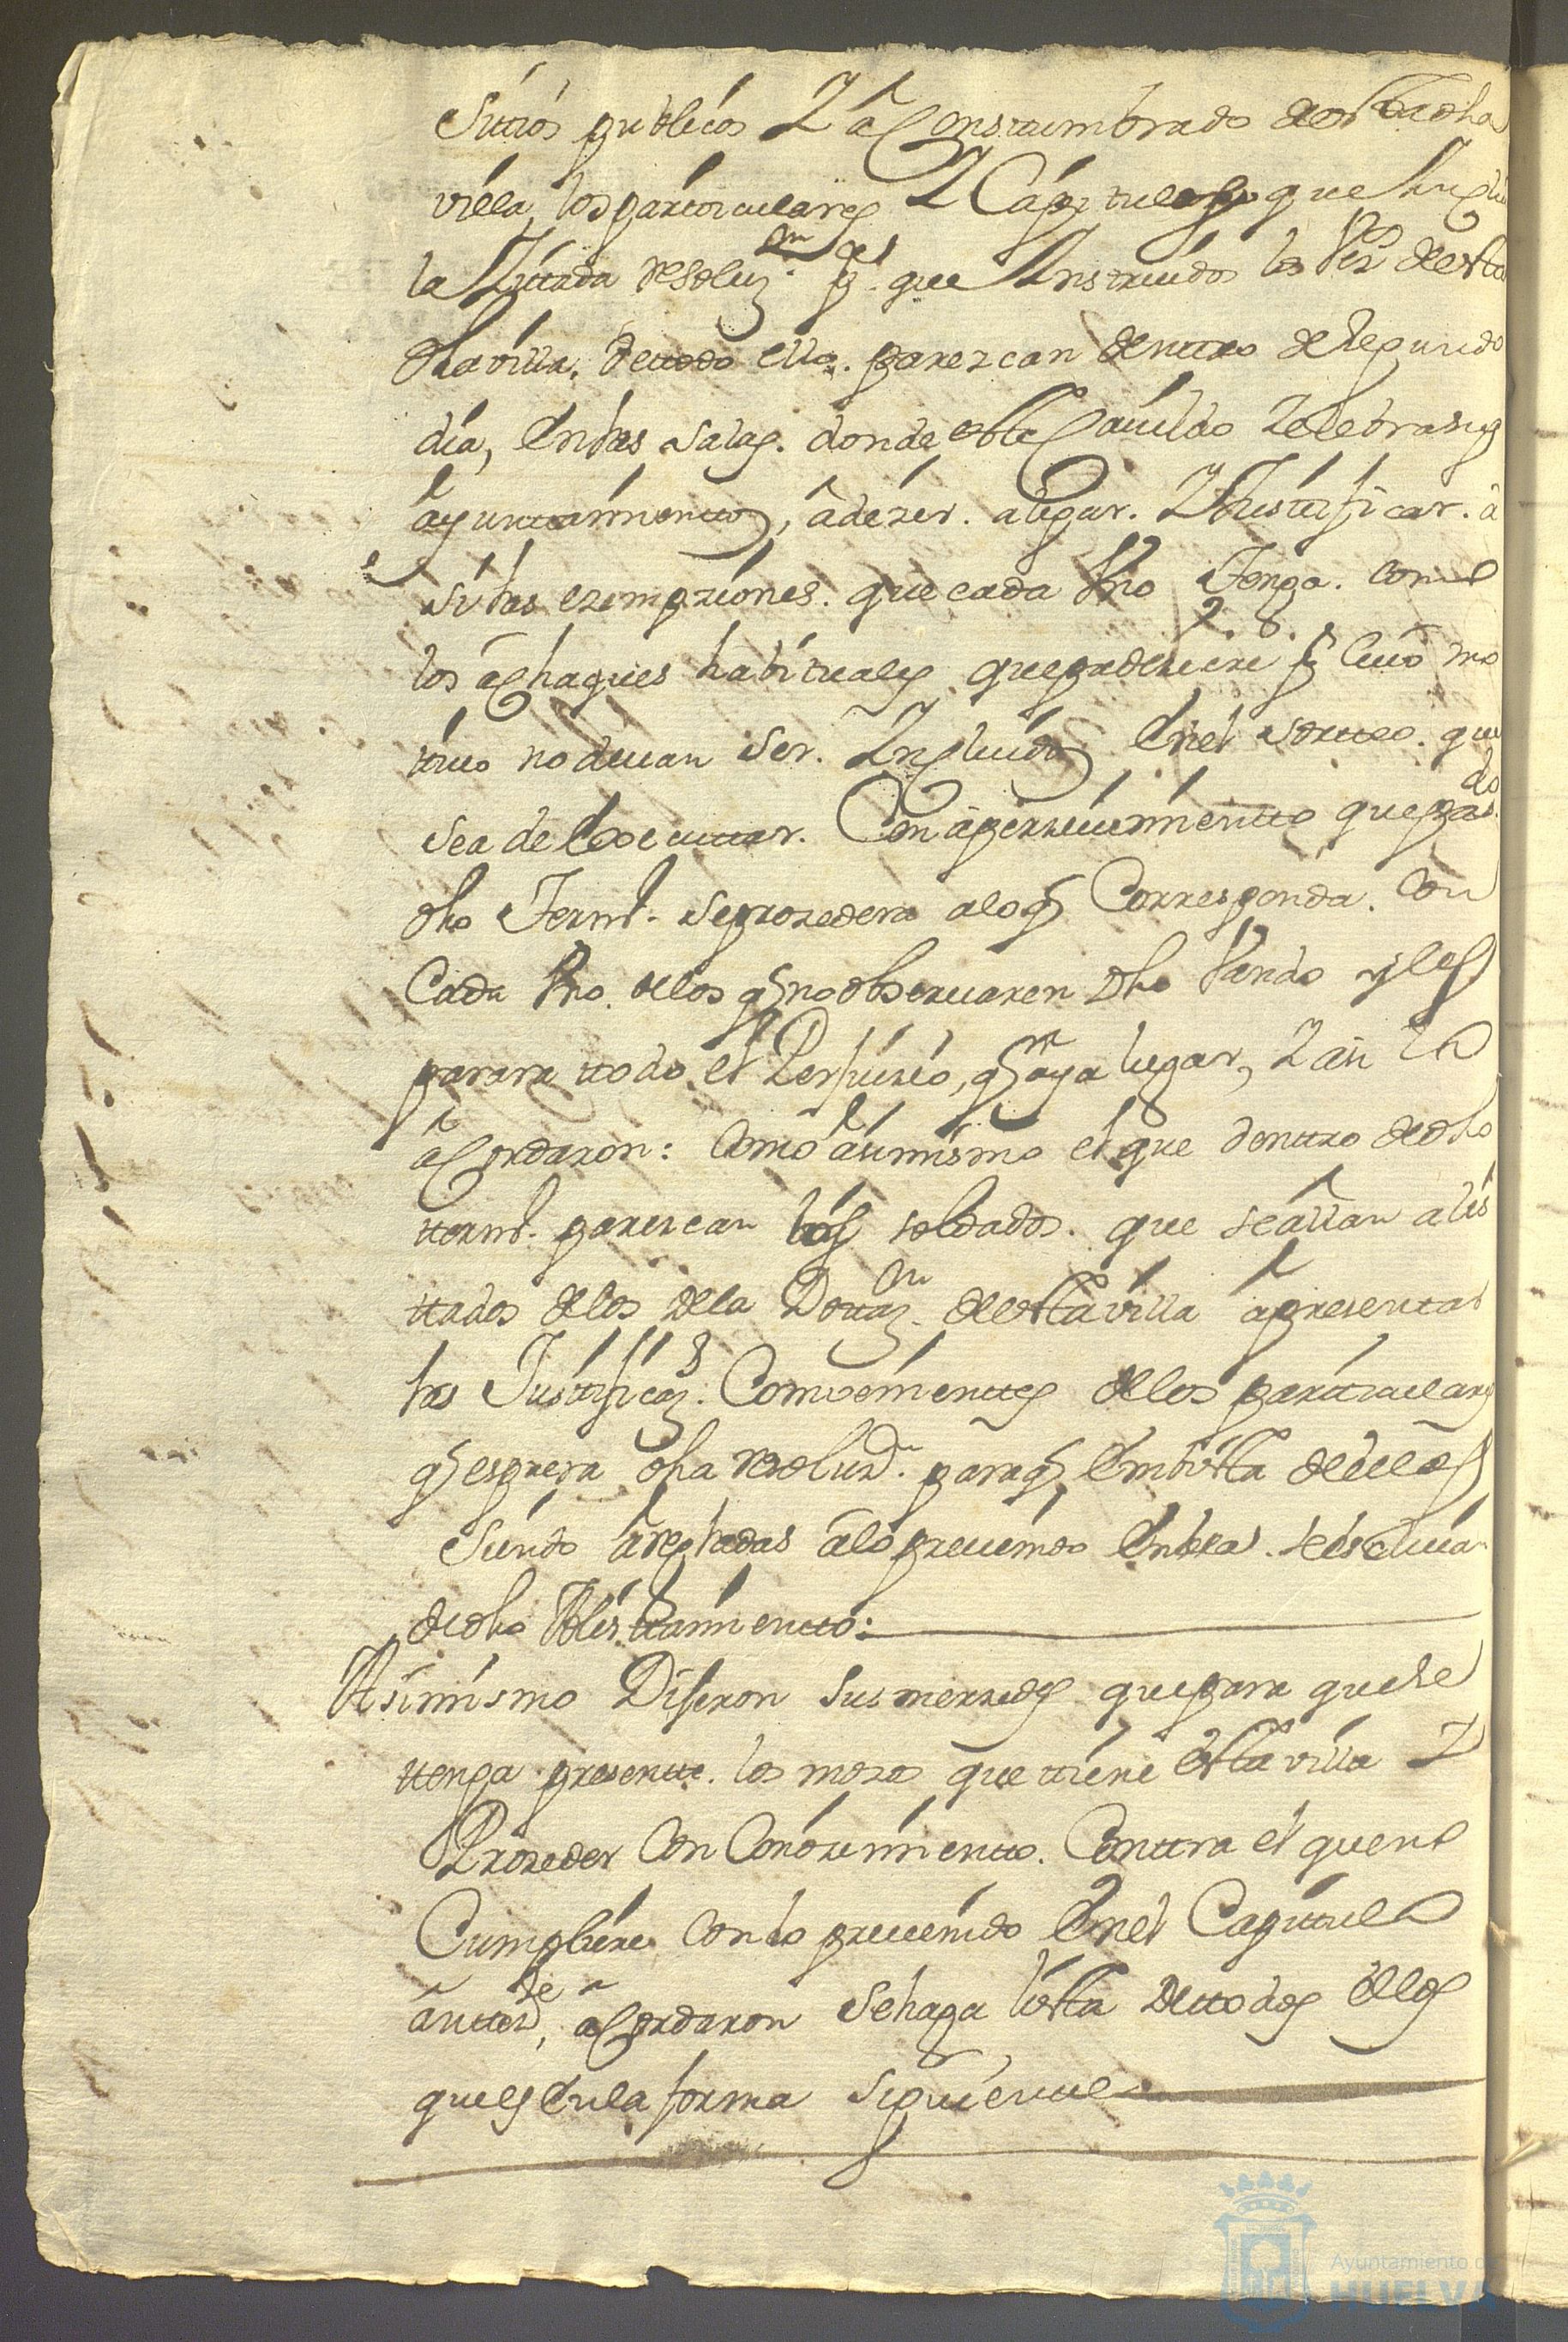 Sitios publicos Y aConstumbrado de esta dha
villa, los particulares Y Capitulos que Incluie
la Zitada resoluz.on p.a que Instruidos los vez.os de esta
dha villa, de ttodo ello. parezcan denttro de segundo
dia, En las Salas. donde este Cavildo Zelebra sus
ayunttamienttos, a dezir. alegar. Y Justificar. a
si las exempziones. que cada Vno Tenga. como
los achaques habituales que padeziere p.r cuio mo
tivo no devan ser. Yncluidos En el sortteo. que
sea de Executtar. Con aperzevimientto que pasado
dho Term.o se prozedera a lo q Corresponda. Con
Cada Vno. de los q no observaren dho Vando y les
parara ttodo el Perjuizio, q aya lugar, Y asi lo
aCordaron: Como asimismo el que denttro de dho
tterm.o parezcan los soldados. que se allan alis
ttados de los de la Dottaz.on de esta villa a presentar
las Justificaz.s Combenienttes de los partticulares
q espresa dha resoluz.n para q En vista de ellos
Siendo arregladas a lo prevenido En ella. se escluian
de dho Alisttamientto:
Asimismo Dijeron Sus merzedes que para que se
ttenga presentte. los mozos que ttiene esta villa Y
Prozeder Con Conozimientto. Conttra el que no
Cumpliere Con lo prevenido En el Capittulo
antteze.de, aCordaron Se haga lista de ttodos ellos
que es En la forma Siguientte
Ayuntamiento de
HUELVA